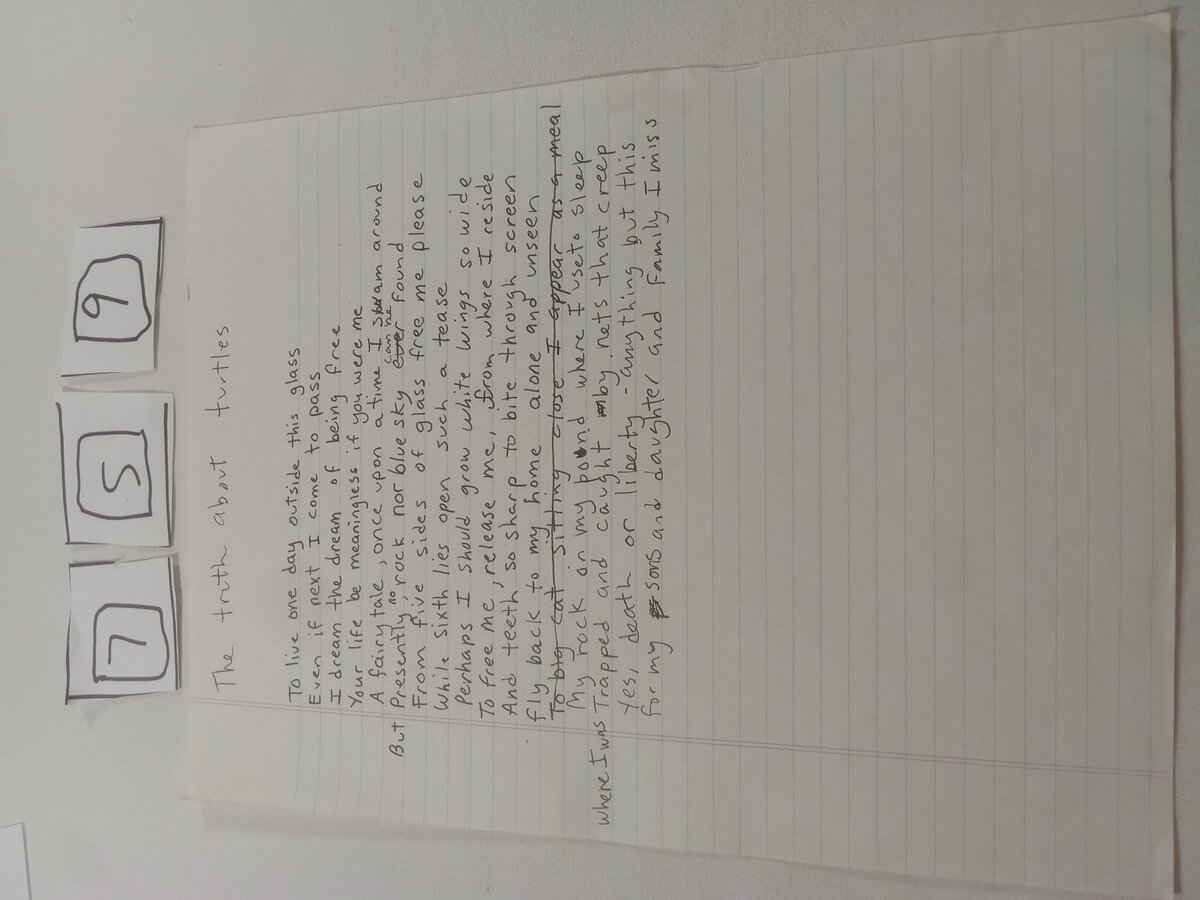 7 5 9
The truth about turtles
To live one day outside this glass
Even if next I come to pass
I dream the dream of being free
Your life be meaningless if you were me
A fairytale, once upon a time I swam around
But Presently, no rock nor blue sky can be found
From five sides of glass free me please
While sixth lies open such a tease
Perhaps I should grow white wings so wide
To free me, release me, from where I reside
And teeth, so sharp to bite through screen
fly back to my home alone and unseen
To big cat sitting close I appear as a meal
My rock in my pond where I use to sleep
where I was Trapped and caught by nets that creep
Yes, death or liberty - anything but this
for my sons and daughter and family I miss